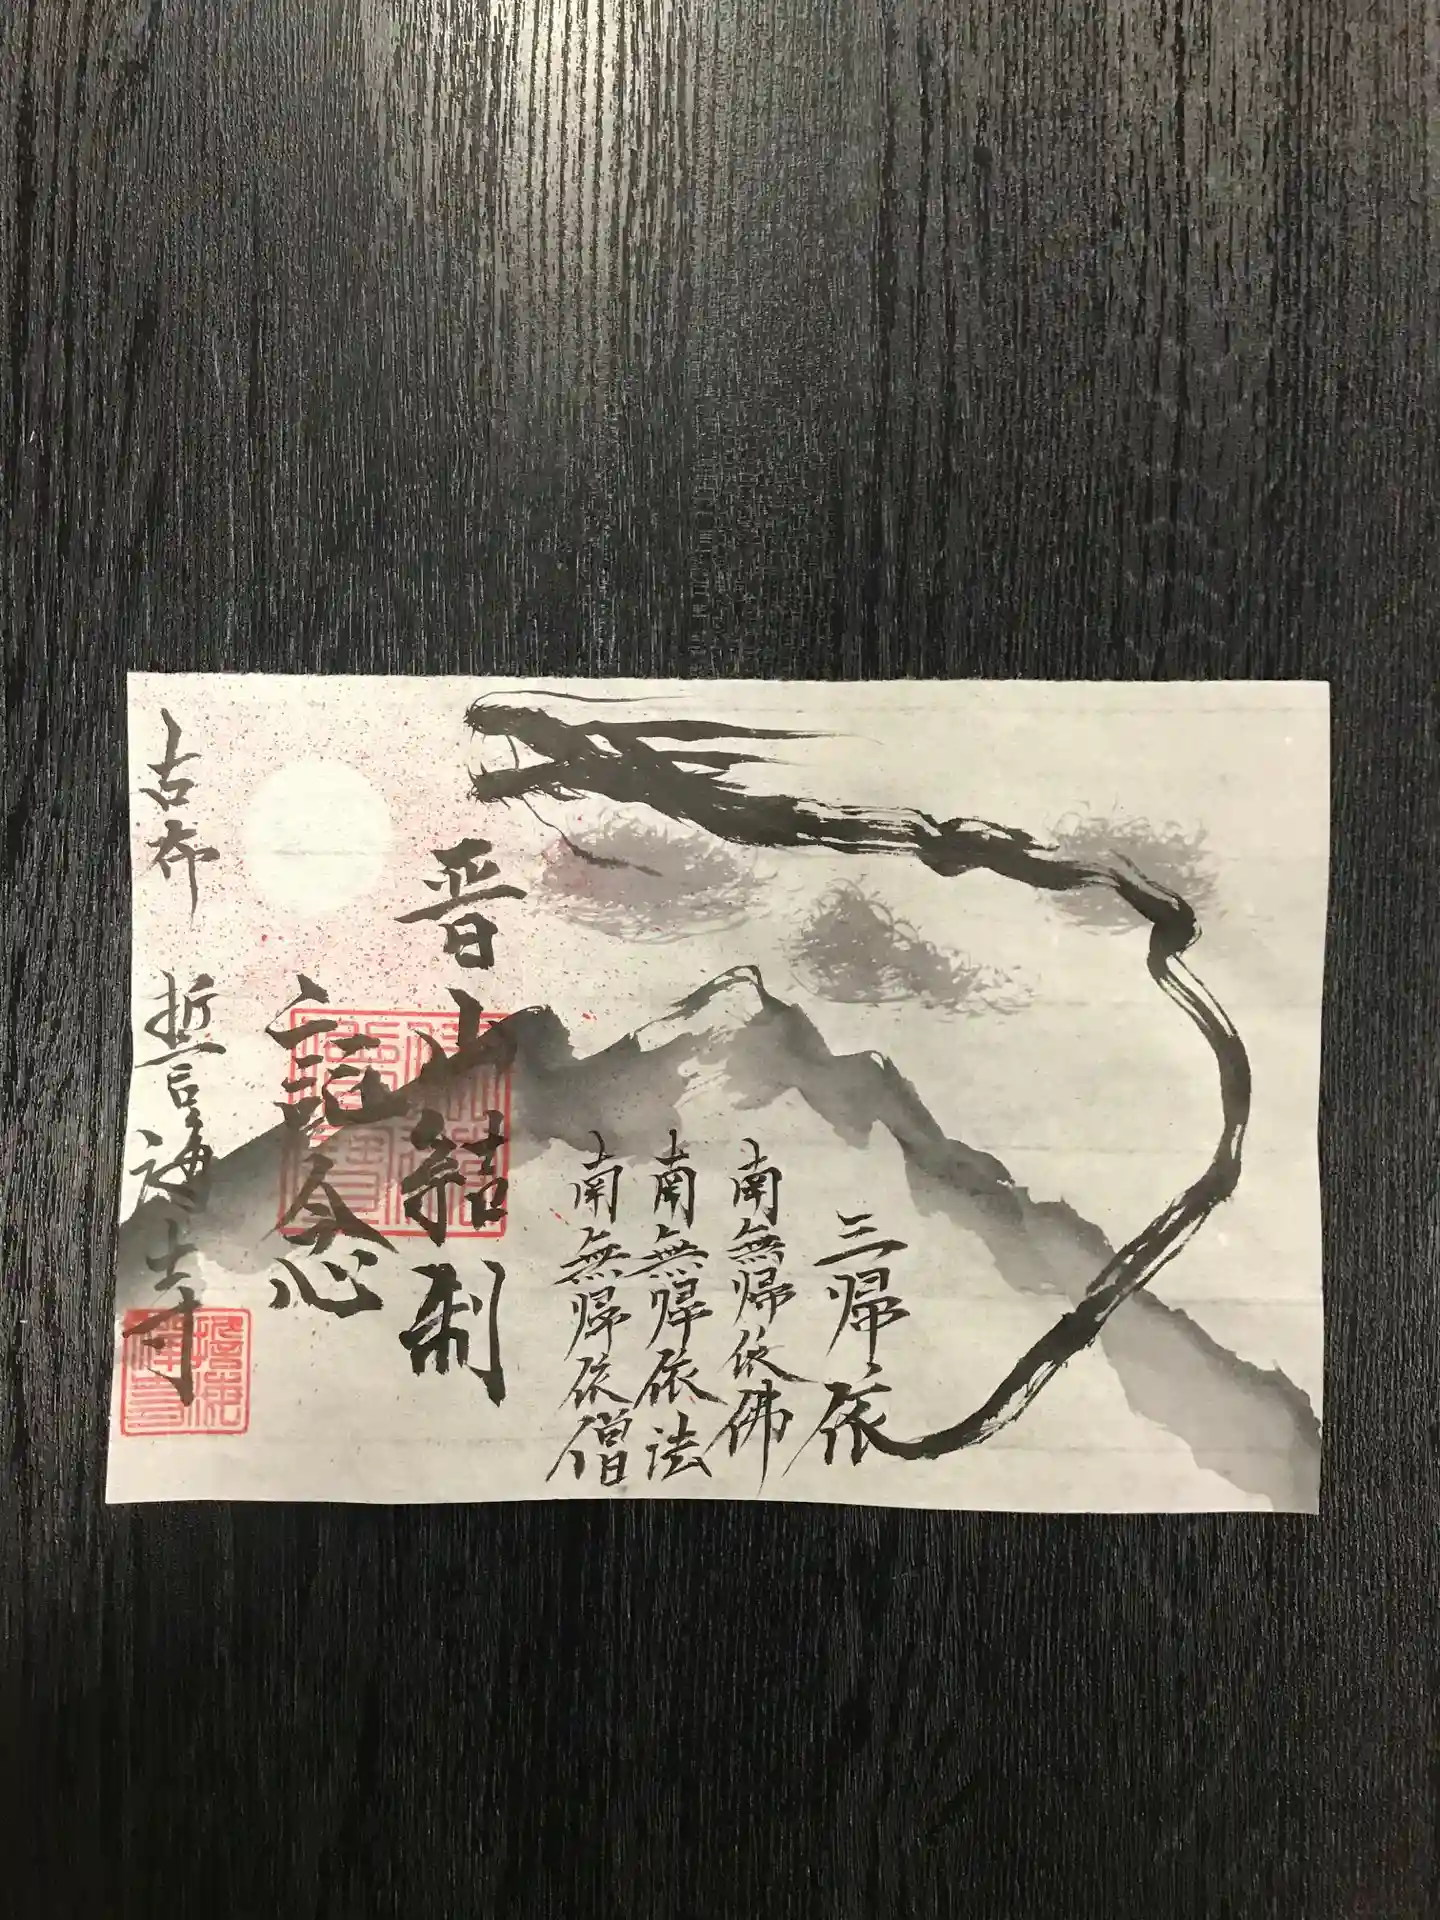 三帰依
南無帰依佛
南無帰依法
南無帰依僧
晋山結制
記念
古布
誓海寺